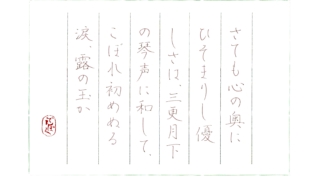 さても心の奥に
ひそまりし優
しさは、三更月下
の琴声に和して、
こぼれ初めぬる
涙、露の玉か